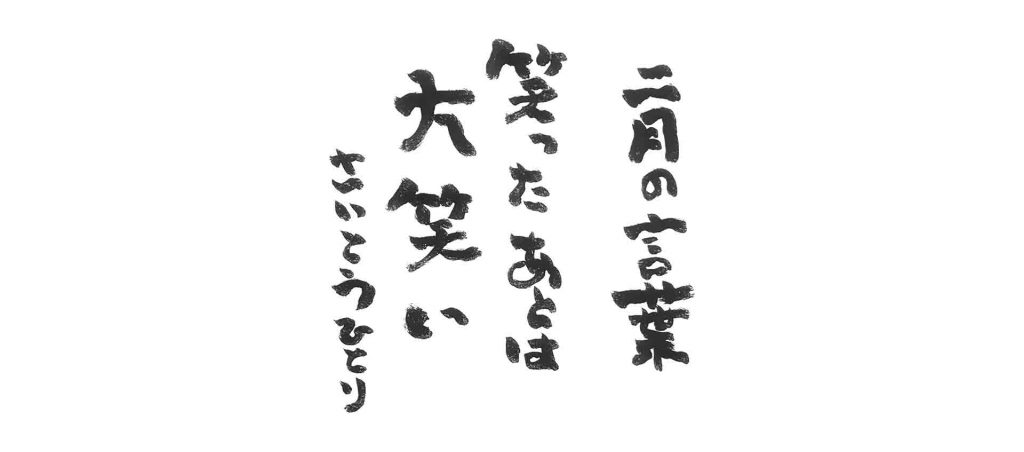 二月の言葉
笑ったあとは
大笑い
さいとうひとり